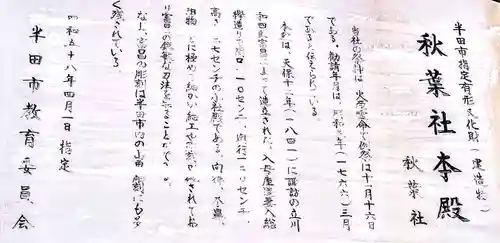 半田市指定有形文化財(建造物)
秋葉社本殿
秋葉社
当社の祭神は火之 命 例祭は十一月十六日
である。勧請年月は、明和三年(一七六六)三月
であると伝えられている
本殿は、天保十二年(一八四一)に諏訪の立川
和四郎富昌によって造立された、入母屋造妻入総
欅造りで間口一一〇センチ、奥行一三二センチ、
高さ 二七センチの小社殿である。向拝、木鼻、
脇 どに極めて細かい細工や彫刻が施されており
富昌の鋭 な刀法を 知ることができる。
なお、富昌の彫刻は半田市内の山車彫刻にも多
く残されている。
昭和五十八年四月一日 指定
半田市教育委員会